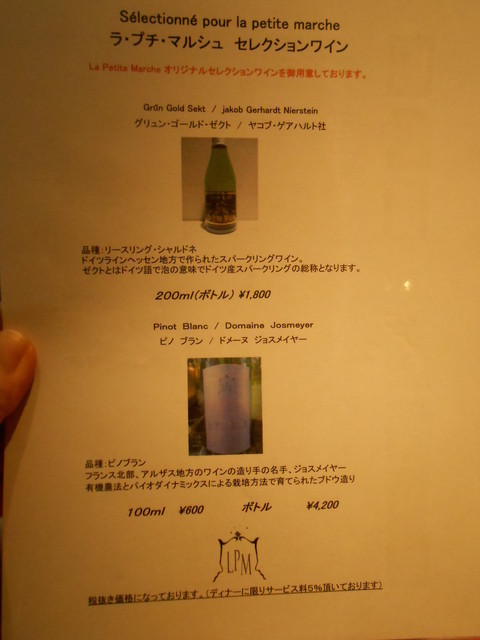 Sélectionné pour la petite marche
ラ・プチ・マルシュ セレクションワイン
La Petite Marche オリジナルセレクションワインを御用意しております。
Grūn Gold Sekt / jakob Gerhardt Nierstein
グリュン・ゴールド・ゼクト / ヤコブ・ゲアハルト社
品種：リースリング・シャルドネ
ドイツラインヘッセン地方で作られたスパークリングワイン。
ゼクトとはドイツ語で泡の意味でドイツ産スパークリングの総称となります。
200ml(ボトル) ¥1,800
Pinot Blanc / Domaine Josmeyer
ピノ ブラン / ドメーヌ ジョスメイヤー
品種：ピノブラン
フランス北部、アルザス地方のワインの造り手の名手、ジョスメイヤー
有機農法とバイオダイナミックスによる栽培方法で育てられたブドウ造り
100ml ¥600 ボトル ¥4,200
LPM
税抜き価格になっております。(ディナーに限りサービス料5%頂いております)